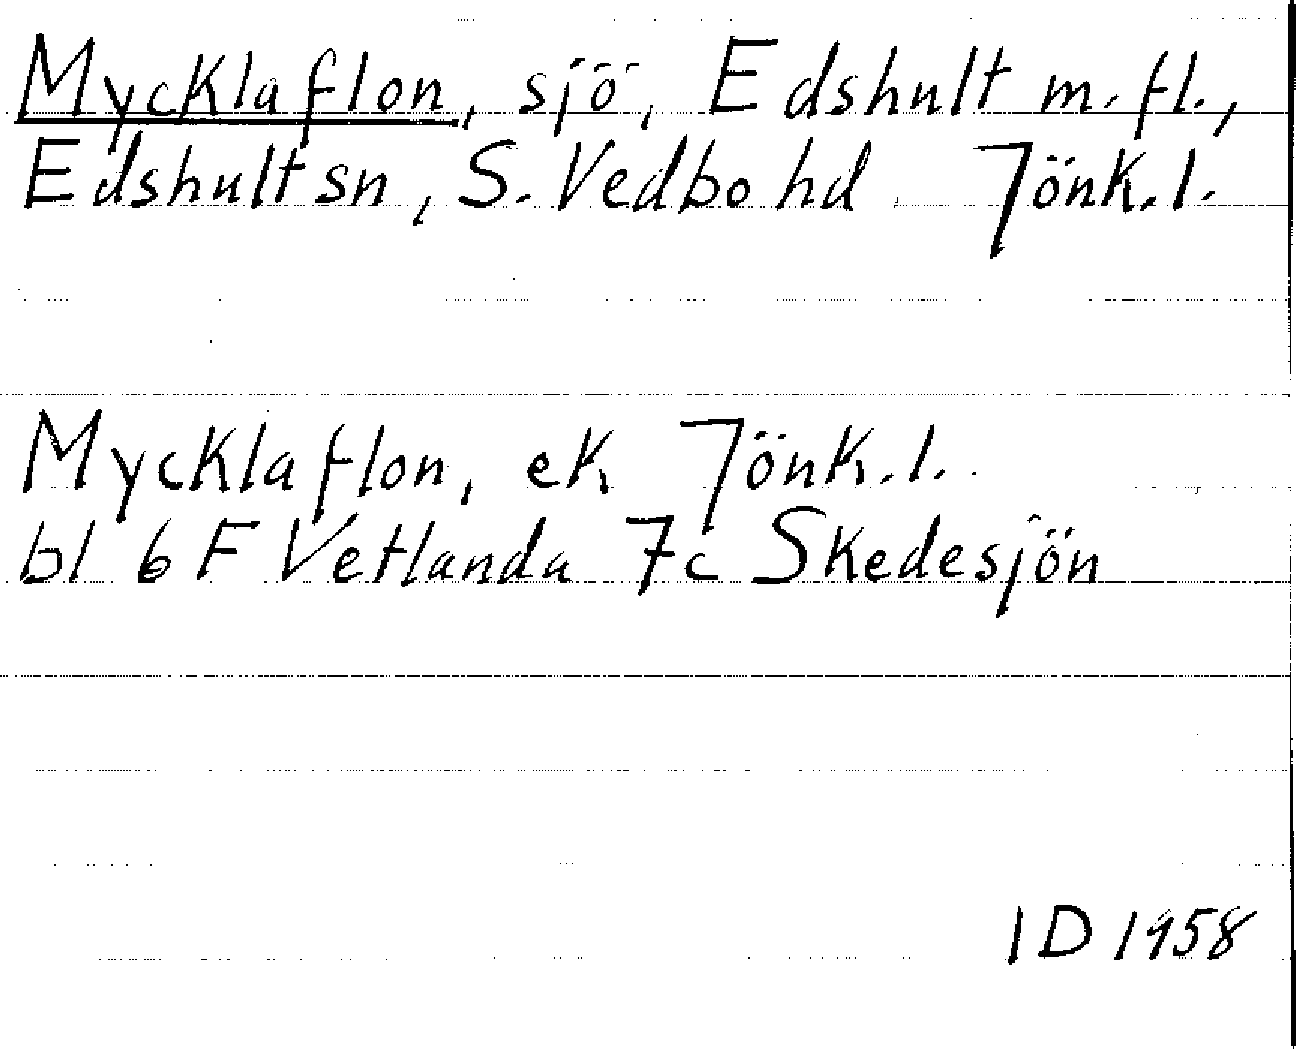 Mycklaflon, sjö, Edshult m.fl.,
Edshult sn, S. Vedbo hd Jönk.l.
Mycklaflon, ek Jönk.l.
bl 6 F Vetlanda 7c Skedesjön
ID 1958